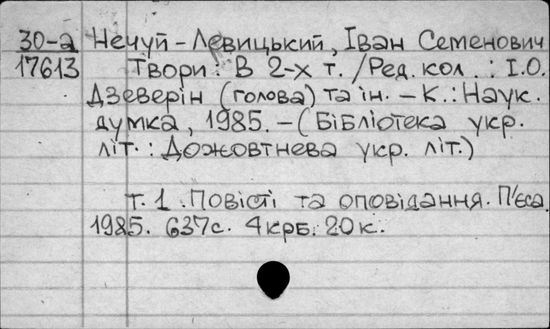 30-а Нечуй-Левицький, Іван Семенович
17613 Твори: В 2-х т. /Ред. кол.: І.О.
Дзеверін (голова) та ін. – К.: Наук.
думка, 1985. – (Бібліотека укр.
літ.: Дожовтнева укр. літ.)
т. 1. Повісті та оповідання. П'єса.
1985. 637с. 4крб. 20к..